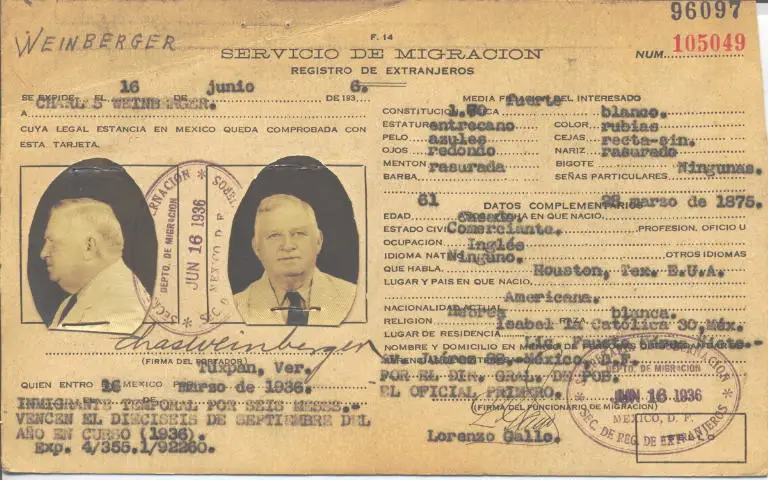 96097
WEINBERGER
F. 14
SERVICIO DE MIGRACION
NUM. 105049
REGISTRO DE EXTRANJEROS
SE EXPIDE EL 16 DE junio DE 193 6.
A CHARLES WEINBERGER.
CUYA LEGAL ESTANCIA EN MEXICO QUEDA COMPROBADA CON
ESTA TARJETA.
DEPTO. DE MIGRACION
JUN 16 1936
MEXICO D. F.
Chas Weinberger
(FIRMA DEL PORTADOR)
Tuxpan, Ver.
QUIEN ENTRO A MEXICO
EL 16 DE marzo de 1936.
INMIGRANTE TEMPORAL POR SEIS MESES.-
VENCEN EL DIECISEIS DE SEPTIEMBRE DEL
AÑO EN CURSO (1936).
Exp. 4/355.1/92260.
MEDIA FILIACION DEL INTERESADO
CONSTITUCION fuerte
ESTATURA 1.80 COLOR blanco.
PELO entrecano CEJAS rubias
OJOS azules NARIZ recta-sin.
MENTON redondo BIGOTE rasurado
BARBA. rasurada SEÑAS PARTICULARES Ningunas.
DATOS COMPLEMENTARIOS
EDAD 61 FECHA EN QUE NACIO 28 marzo de 1875.
ESTADO CIVIL PROFESION, OFICIO U
OCUPACION Comerciante.
IDIOMA NATIVO Inglés OTROS IDIOMAS
QUE HABLA. Ninguno.
LUGAR Y PAIS EN QUE NACIO, Houston, Tex. E.U.A.
NACIONALIDAD ACTUAL Americana.
RELIGION RAZA blanca.
LUGAR DE RESIDENCIA Isabel la Católica 30, Méx.
NOMBRE Y DOMICILIO EN MEXICO DE
Av. Juárez México, D.F.
POR EL DIR. GRAL. DE POB.
EL OFICIAL PRIMERO.
(FIRMA DEL FUNCIONARIO DE MIGRACION)
Lorenzo Gallo.
DEPTO. DE MIGRACION
JUN 16 1936
MEXICO, D. F.
SEC. DE REG. DE EXTRANJEROS